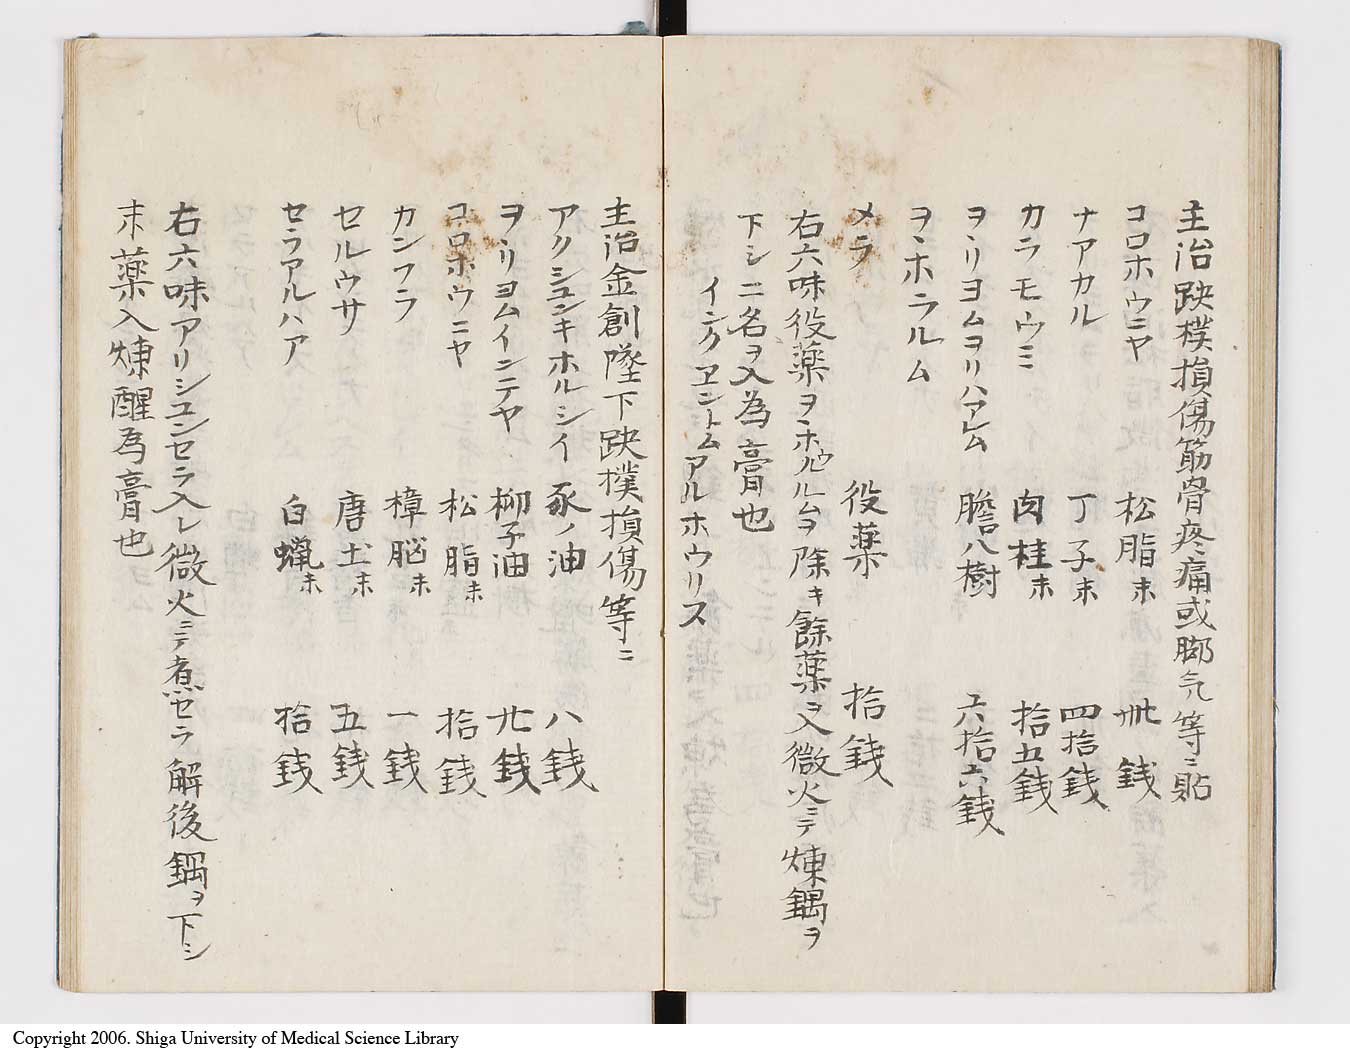 主治跌撲損傷筋骨疼痛或脚気等ニ貼
コロホウニヤ 松脂末 卅銭
ナアカル 丁子末 四拾銭
カラモウミ 肉桂末 拾五銭
ヲヽリヨムヲリハアレム 膽八樹 六拾六銭
ヲヽホラルム
メラ 役薬 拾銭
右六味役薬ヲヽホルルムヲ除キ餘薬ヲ入微火ニテ煉鍋ヲ
下シ二名ヲ入為膏也
インクエントムアルホウリス
主治金創墜下跌撲損傷等ニ
アクシユンキホルシイ 豕ノ油 八銭
ヲヽリヨムインテヤ 椰子油 廿銭
コロホウニヤ 松脂末 拾銭
カンフラ 樟脳末 一銭
セルウサ 唐土末 五銭
セラアルハア 白蝋末 拾銭
右六味アリシユンセラ入レ微火ニテ煮セラ解後鍋ヲ下シ
末薬入煉醒為膏也
Copyright 2006. Shiga University of Medical Science Library